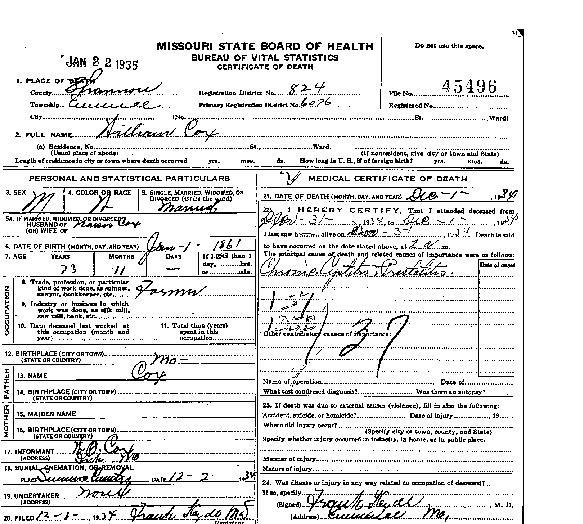 MISSOURI STATE BOARD OF HEALTH
BUREAU OF VITAL STATISTICS
CERTIFICATE OF DEATH
Do not use this space.
JAN 22 1935
1. PLACE OF DEATH
County Shannon
Registration District No. 824
File No. 45496
Township Eminence
Primary Registration District No. 6076
Registered No.
City
(No.
St.
Ward)
2. FULL NAME William Cox
(a) Residence, No.
St.
Ward.
(Usual place of abode)
(If nonresident, give city or town and State)
Length of residence in city or town where death occurred yrs. mos. ds. How long in U. S., if of foreign birth? yrs. mos. ds.
PERSONAL AND STATISTICAL PARTICULARS
3. SEX M
4. COLOR OR RACE W
5. SINGLE, MARRIED, WIDOWED, OR DIVORCED (write the word) Married
5a. IF MARRIED, WIDOWED, OR DIVORCED
HUSBAND OF
(OR) WIFE OF Cox
6. DATE OF BIRTH (MONTH, DAY, AND YEAR) Jan-1- 1861
7. AGE YEARS 73 MONTHS 11 DAYS —
If LESS than 1 day, hrs. or min.
OCCUPATION
8. Trade, profession, or particular kind of work done, as spinner, sawyer, bookkeeper, etc. Farmer
9. Industry or business in which work was done, as silk mill, saw mill, bank, etc.
10. Date deceased last worked at this occupation (month and year)
11. Total time (years) spent in this occupation
12. BIRTHPLACE (CITY OR TOWN)
(STATE OR COUNTRY) Mo-
FATHER
13. NAME Cox
14. BIRTHPLACE (CITY OR TOWN)
(STATE OR COUNTRY)
MOTHER
15. MAIDEN NAME
16. BIRTHPLACE (CITY OR TOWN)
(STATE OR COUNTRY)
17. INFORMANT Cox
(ADDRESS)
18. BURIAL, CREMATION, OR REMOVAL
PLACE DATE 12-2 1934
19. UNDERTAKER None
(ADDRESS)
20. FILED 12-3- 1934 Frank Hyde MD
MEDICAL CERTIFICATE OF DEATH
21. DATE OF DEATH (MONTH, DAY, AND YEAR) Dec-1- 1934
22. I HEREBY CERTIFY, That I attended deceased from
1934 to Dec-1- 1934
I last saw him alive on 1934 Death is said
to have occurred on the date stated above, at 2 a m.
The principal causes of death and related causes of importance were as follows:
Date of onset
Chronic Cystitis & Prostatitis
137
Other contributory causes of importance:
Name of operation Date of
What test confirmed diagnosis? Was there an autopsy?
23. If death was due to external causes (violence), fill in also the following:
Accident, suicide, or homicide? Date of injury 19
Where did injury occur?
(Specify city or town, county, and State)
Specify whether injury occurred in industry, in home, or in public place.
Manner of injury
Nature of injury
24. Was disease or injury in any way related to occupation of deceased?
If so, specify
(Signed) Frank Hyde M. D.
(Address) Eminence Mo,